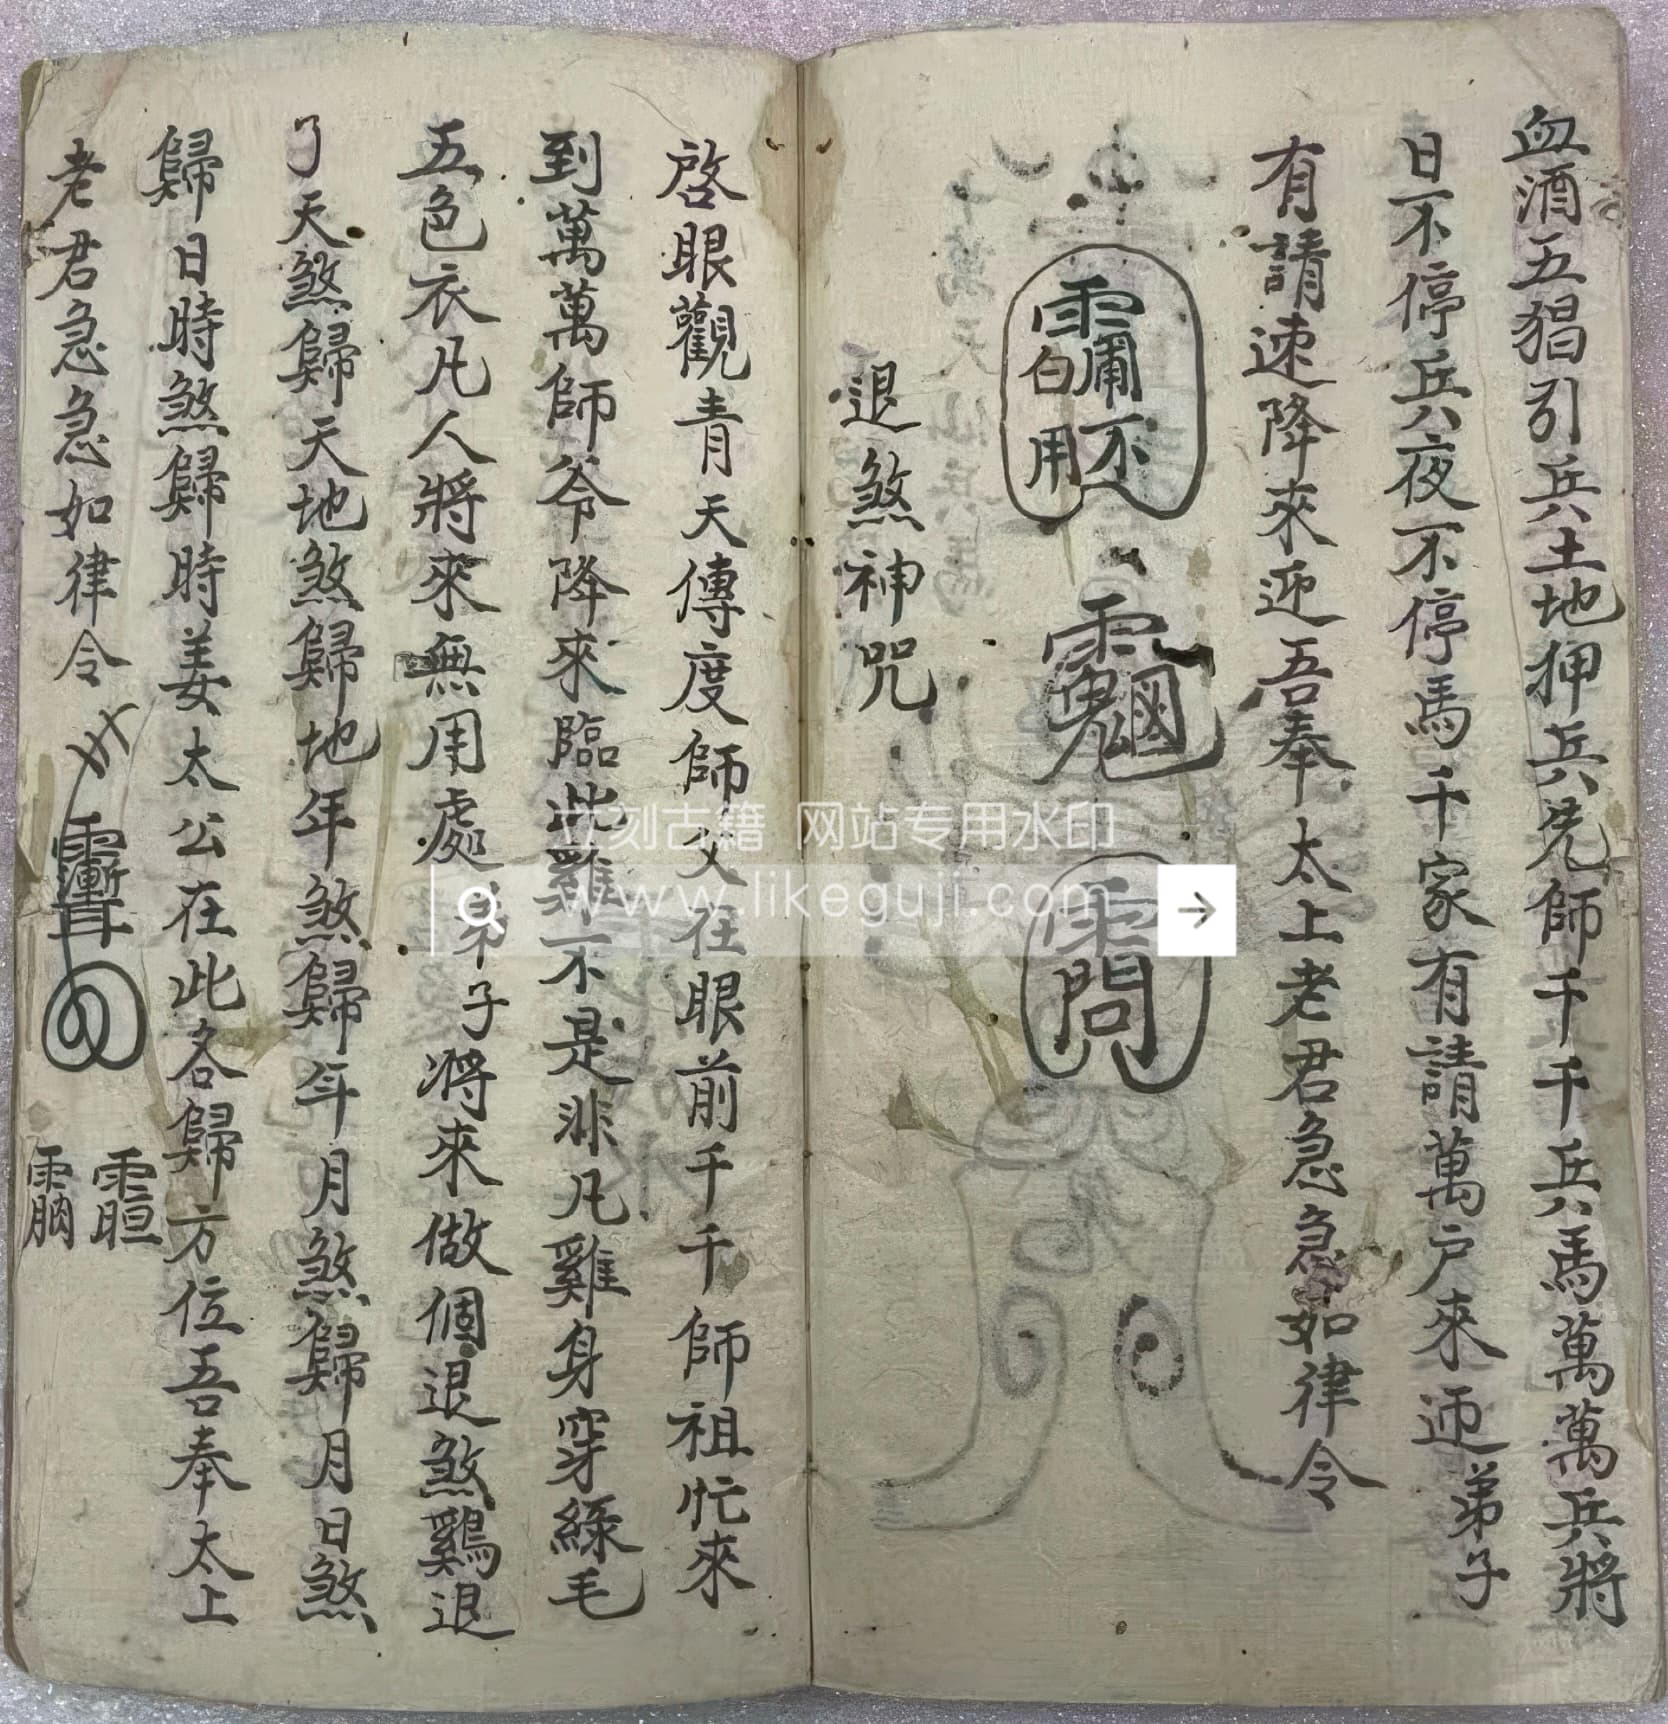 血酒五猖引兵土地押兵先師千千兵馬萬萬兵將
日不停兵夜不停馬千家有請萬户來迎弟子
有請速降來迎吾奉太上老君急急如律令
退煞神咒
啓眼觀青天傳度師父在眼前千千師祖忙來
到萬萬師爷降來臨此雞不是非凡雞身穿綠毛
五色衣凡人將來無用處弟子將來做個退煞鷄退
了天煞歸天地煞歸地年煞歸年月煞歸月日煞
歸日時煞歸時姜太公在此各歸方位吾奉太上
老君急急如律令
立刻古籍 网站专用水印
www.likeguji.com